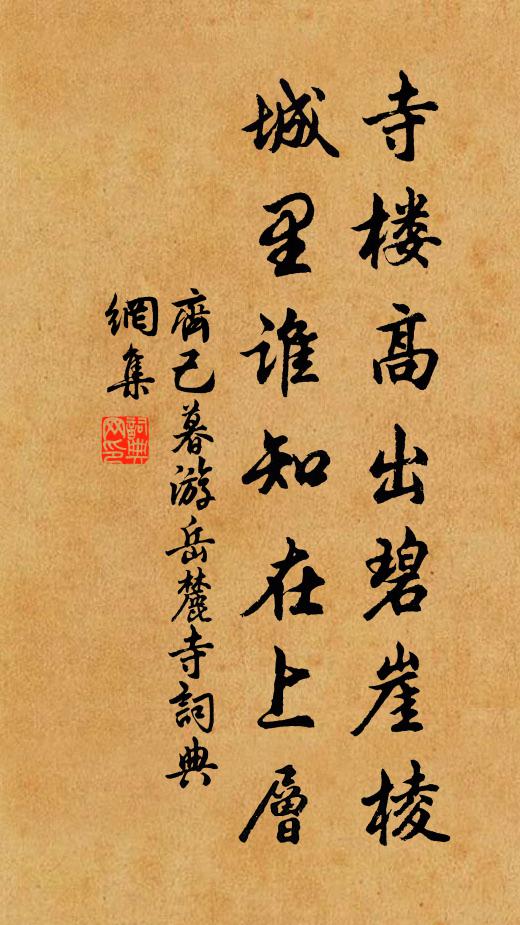 寺楼高出碧崖棱
城里谁知在上層
齊己暮游岳麓寺詞典
網集
詞典
网印